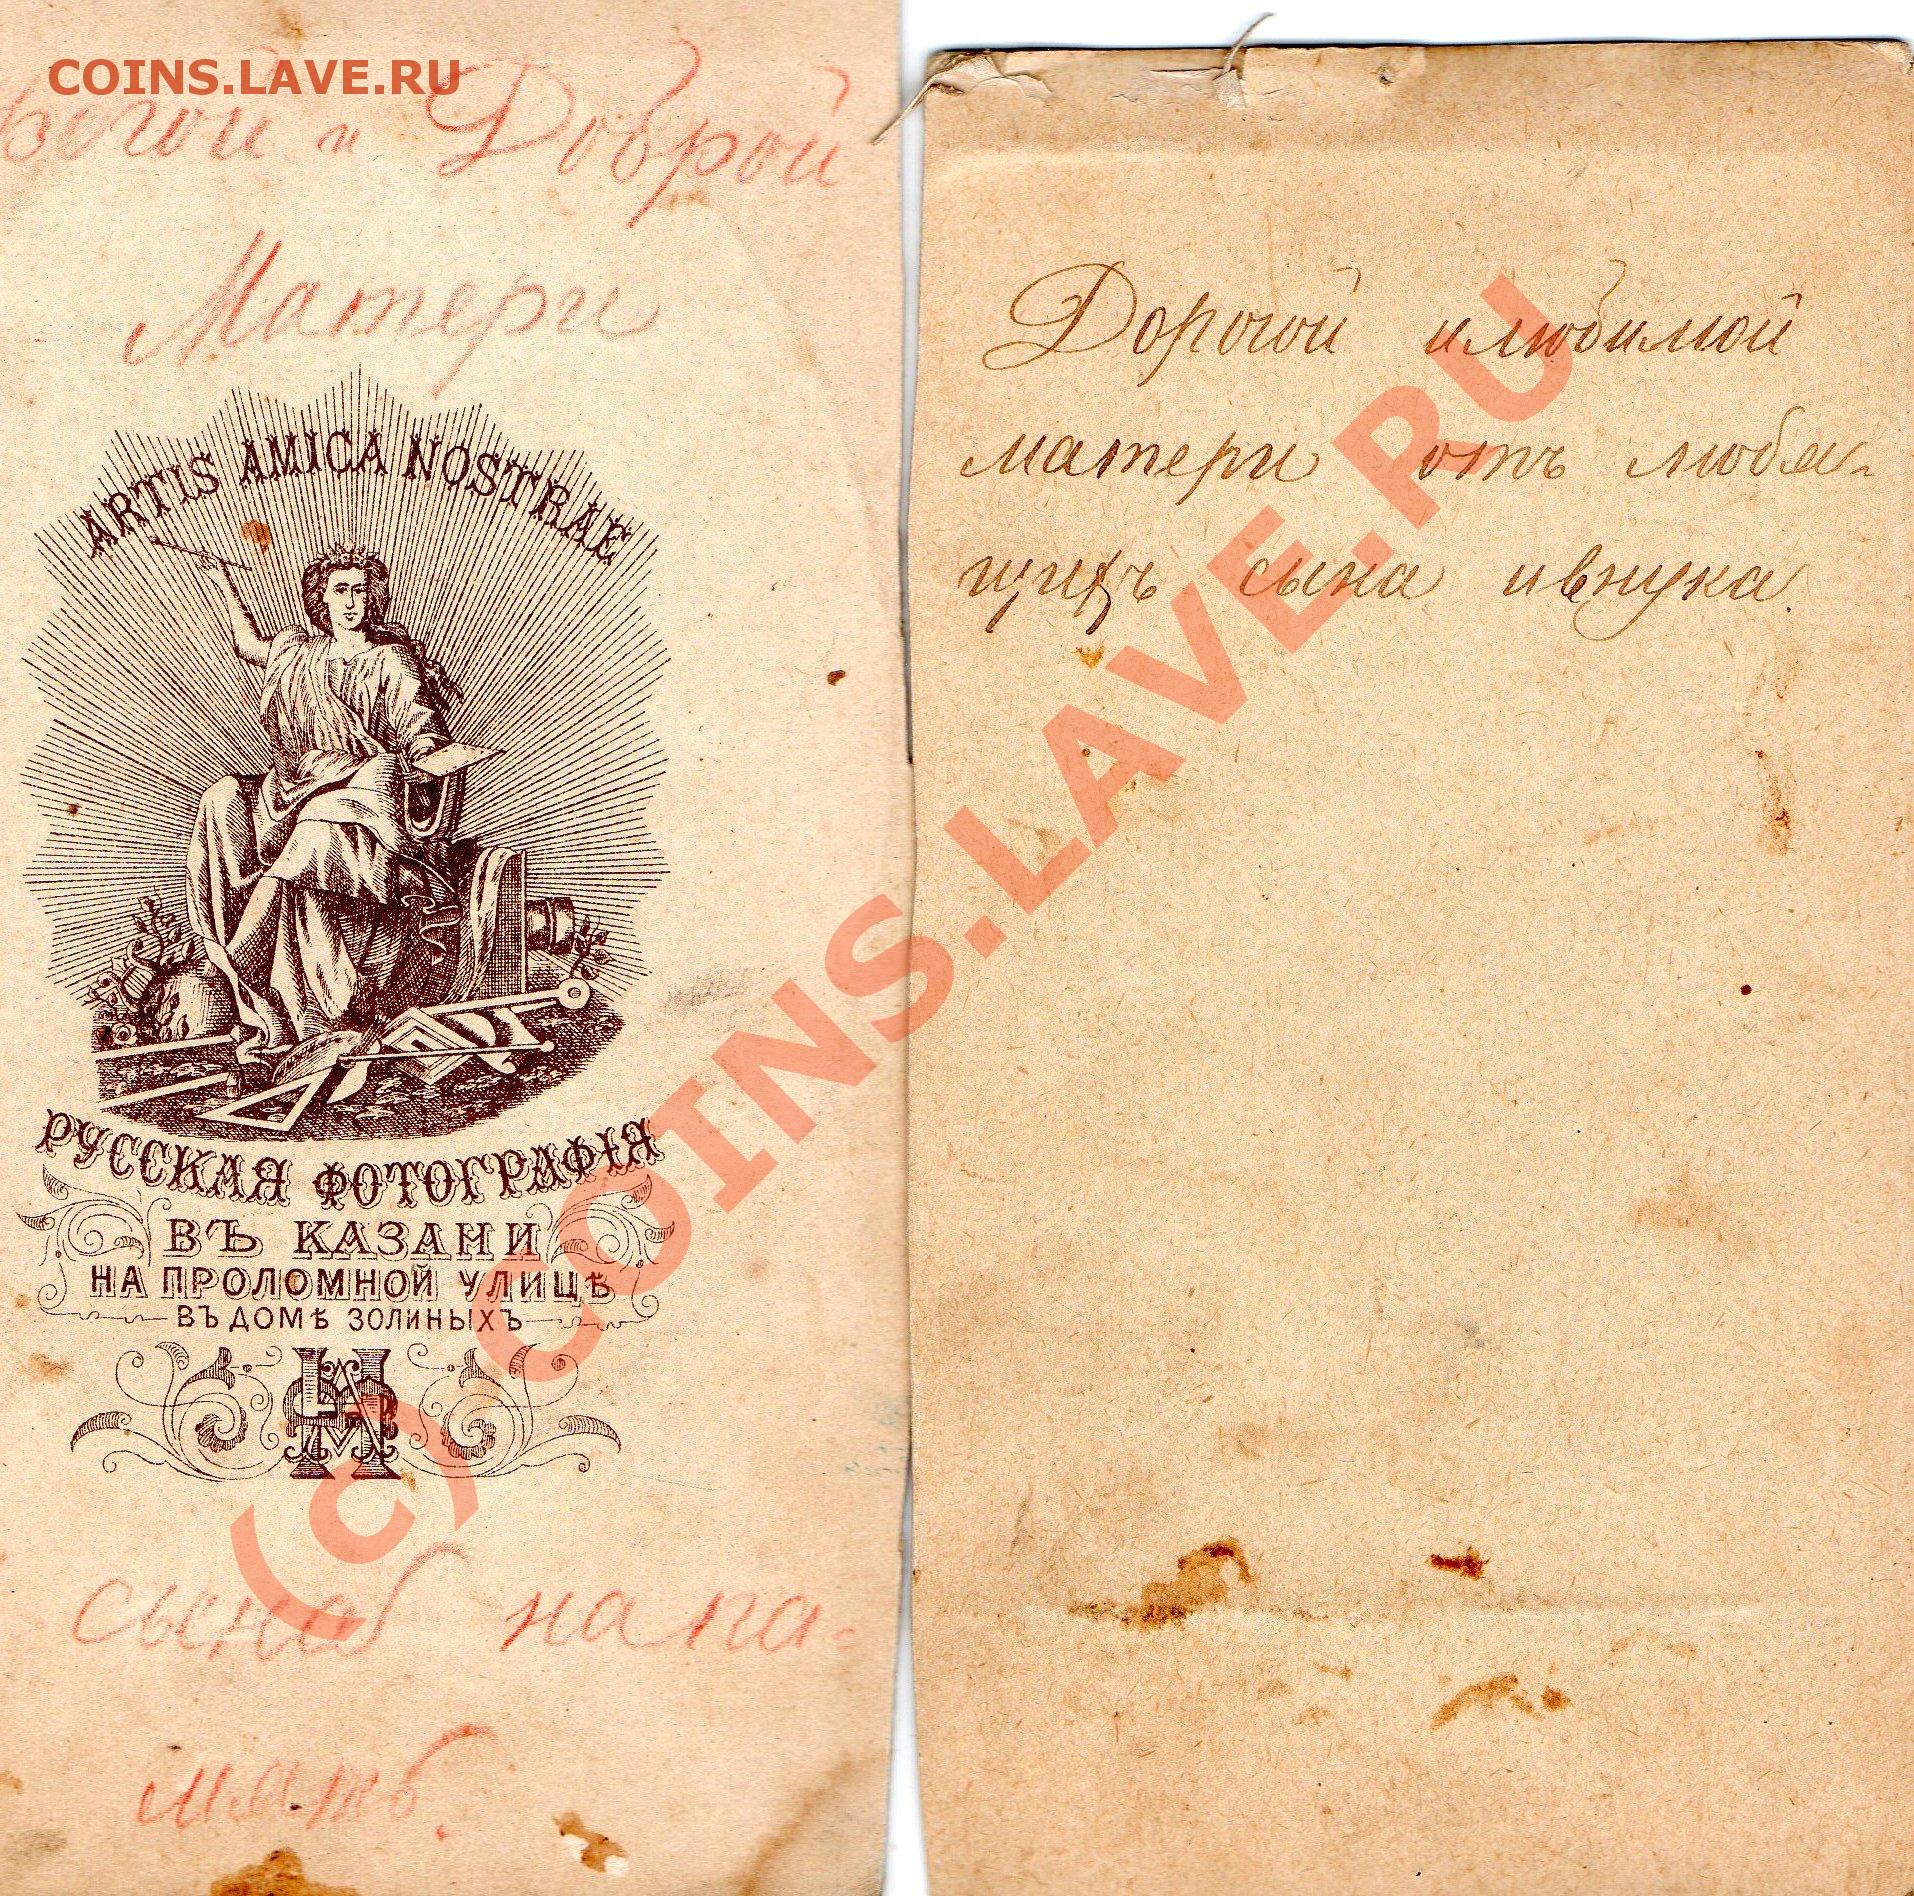 COINS.LAVE.RU
рогой и Доброй
Матери
ARTIS AMICA NOSTRAE
РУССКАЯ ФОТОГРАФІЯ
ВЪ КАЗАНИ
НА ПРОЛОМНОЙ УЛИЦѢ
ВЪ ДОМѢ ЗОЛИНЫХЪ
на па-
мять.
Дорогой илюбимой
матери отъ любя-
щихъ сына ивнука.
(c) COINS.LAVE.RU